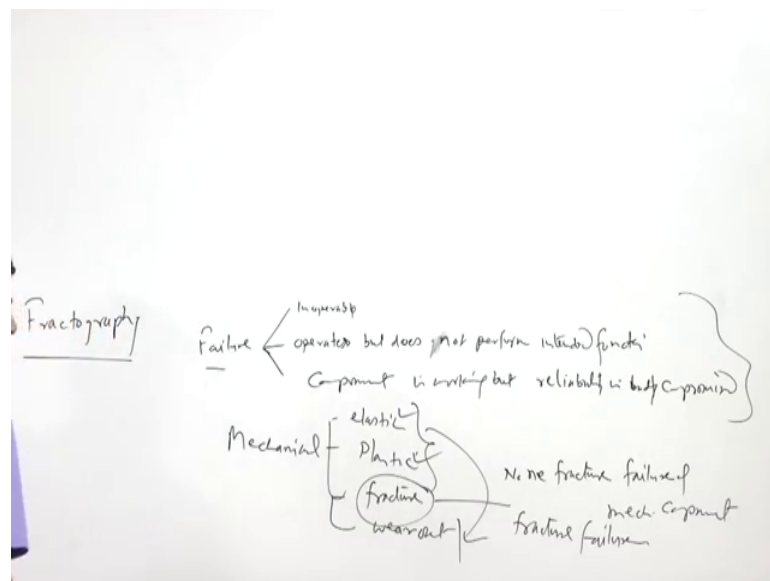 Inoperable
Fractography
Failure
operates but does not perform intended functi
Component is working but reliability is badly compromised
elastic
Mechanical
Plastic
fracture
wearout
None fracture failure of
mech. Component
fracture failure